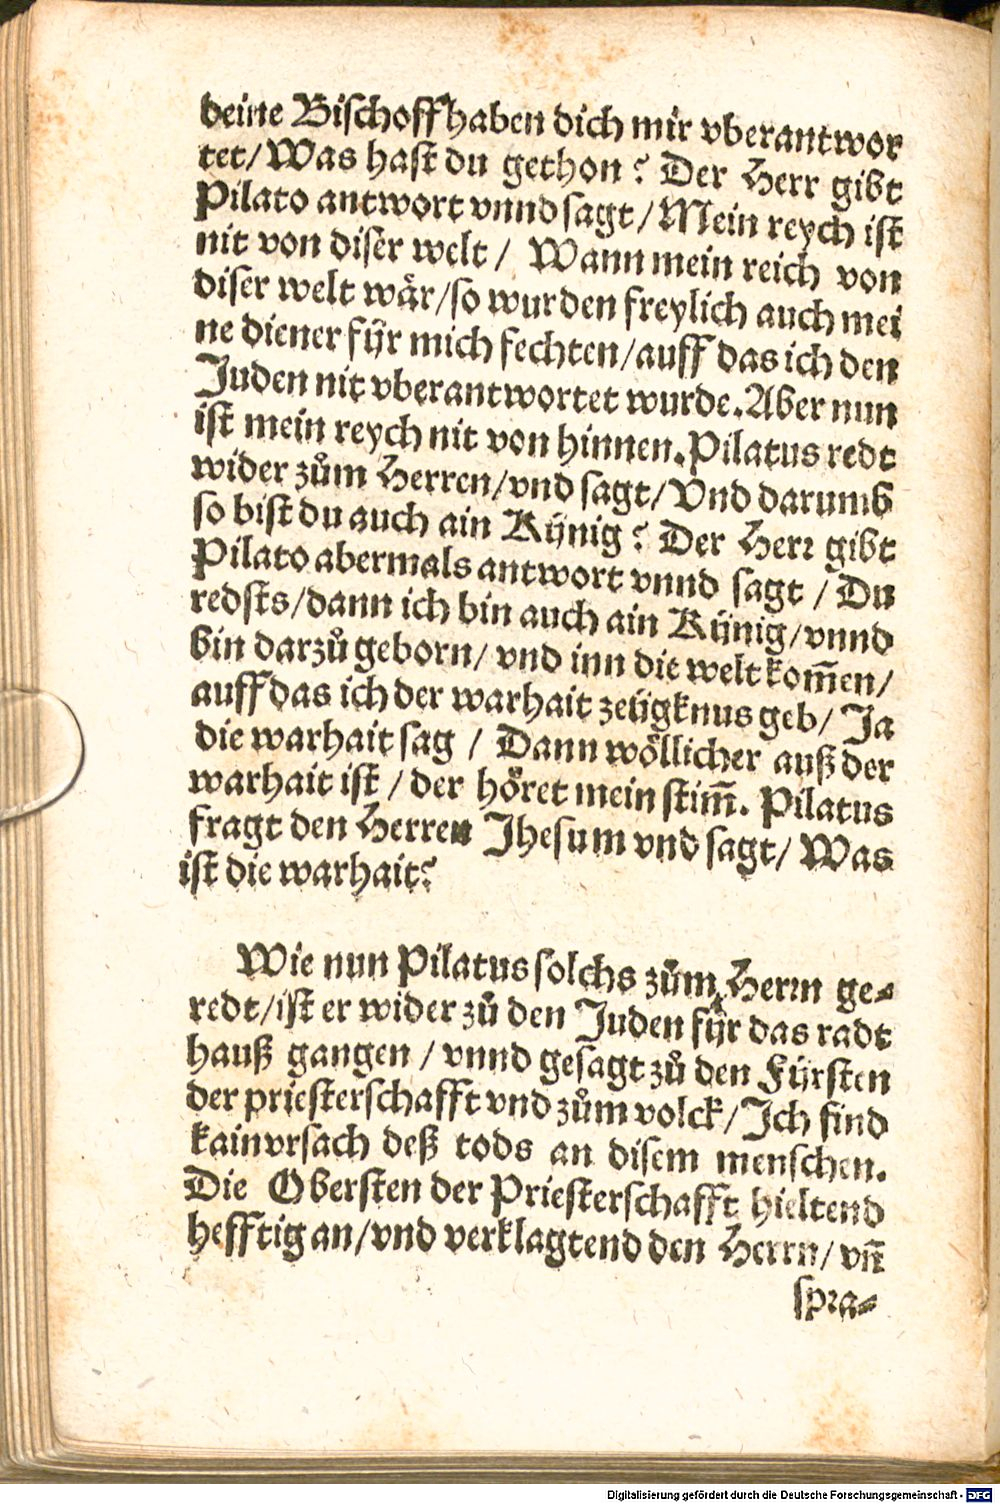 deine Bischoff haben dich mir vberantwor
tet/ Was hast du gethon? Der Herr gibt
Pilato antwort vnnd sagt/ Mein reych ist
nit von diser welt/ Wann mein reich von
diser welt wår/ so wurden freylich auch mei
ne diener fỹr mich fechten/ auff das ich den
Juden nit vberantwortet wurde. Aber nun
ist mein reych nit von hinnen. Pilatus redt
wider zům Herren/ vnd sagt/ Vnd darumb
so bist du auch ain Kỹnig? Der Herr gibt
Pilato abermals antwort vnnd sagt/ Du
redsts/ dann ich bin auch ain Kỹnig/ vnnd
bin darzů geborn/ vnd inn die welt kom̃en/
auff das ich der warhait zeỹgknus geb/ Ja
die warhait sag/ Dann woͤllicher auß der
warhait ist/ der hoͤret mein stim̃. Pilatus
fragt den Herren Jhesum vnd sagt/ Was
ist die warhait?
Wie nun Pilatus solchs zům Herrn ge-
redt/ ist er wider zů den Juden fỹr das radt
hauß gangen/ vnnd gesagt zů den Fỹrsten
der priesterschafft vnd zům volck/ Ich find
kain vrsach deß tods an disem menschen.
Die Obersten der Priesterschafft hieltend
hefftig an/ vnd verklagtend den Herrn/ vñ
spra-
Digitalisierung gefördert durch die Deutsche Forschungsgemeinschaft - DFG